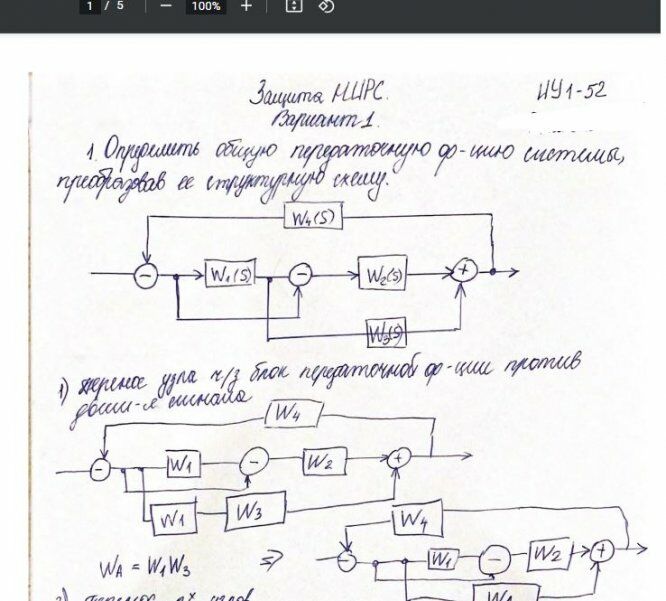 1 / 5 100%
Защита МИРС. ИУ1-52
Вариант 1.
1. Определить общую передаточную ф-цию системы,
преобразовав ее структурную схему.
W₄(s)
− W₁(s) − W₂(s) +
W₃(s)
1) перенос узла ч/з блок передаточной ф-ции против
W₄
− W₁ − W₂ +
W₁ W₃
W₄
W_A = W₁W₃ => − W₁ − W₂ +
2) перенос узлов